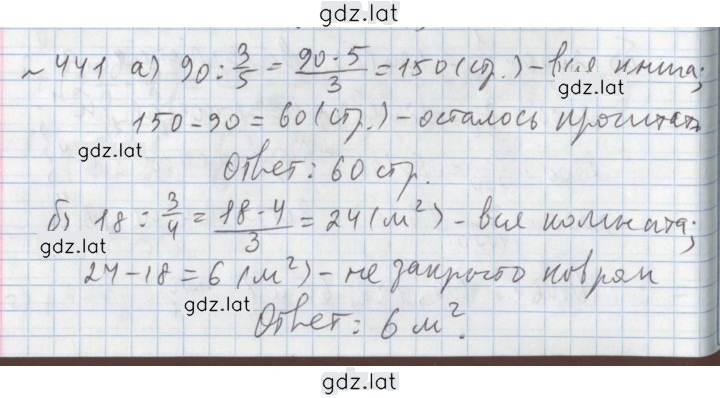 gdz.lat
~ 441 а) 90 : 3/5 = 90 · 5/3 = 150 (ст.) - вся книга;
gdz.lat
150 - 90 = 60 (стр.) - осталось прочитать
gdz.lat
Ответ: 60 стр.
б) 18 : 3/4 = 18 · 4/3 = 24 (м²) - вся комната;
gdz.lat
24 - 18 = 6 (м²) - не закрыто ковром
gdz.lat
Ответ: 6 м².
gdz.lat